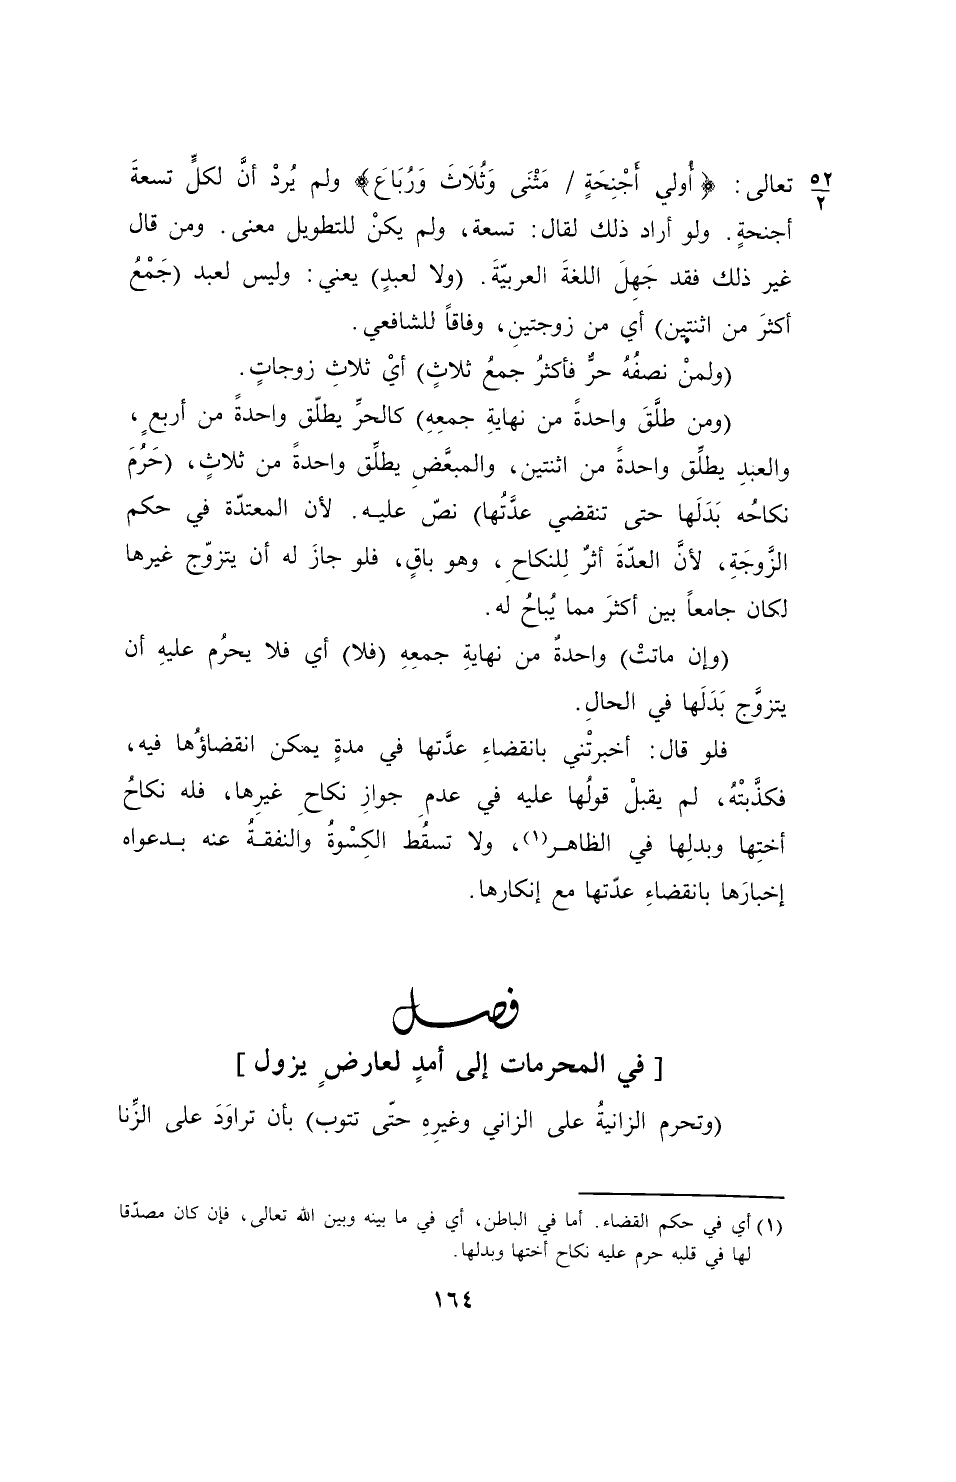 ٥٢
٢
تعالى: ﴿أُولي أَجْنِحَةٍ / مَثْنَى وَثُلَاثَ وَرُبَاعَ﴾ ولم يُردْ أنَّ لكلٍّ تسعةَ
أجنحةٍ. ولو أراد ذلك لقال: تسعة، ولم يكنْ للتطويل معنى. ومن قال
غير ذلك فقد جَهِلَ اللغةَ العربيّةَ. (ولا لعبدٍ) يعني: وليس لعبد (جَمْعُ
أكثرَ من اثنتين) أي من زوجتينِ، وفاقاً للشافعي.
(ولمنْ نصفُهُ حرٌّ فأكثرُ جمعُ ثلاثٍ) أيْ ثلاثِ زوجاتٍ.
(ومن طلَّقَ واحدةً من نهايةِ جمعِهِ) كالحرِّ يطلّق واحدةً من أربعٍ،
والعبدِ يطلِّق واحدةً من اثنتين، والمبعَّضِ يطلِّق واحدةً من ثلاثٍ، (حَرُمَ
نكاحُه بَدَلَها حتى تنقضي عدَّتُها) نصّ عليه. لأن المعتدّة في حكم
الزَّوجَةِ، لأنَّ العدّةَ أثرٌ لِلنكاحِ، وهو باقٍ، فلو جازَ له أن يتزوّج غيرها
لكان جامعاً بين أكثرَ مما يُباحُ له.
(وإن ماتتْ) واحدةٌ من نهايةِ جمعِهِ (فلا) أي فلا يحرُم عليهِ أن
يتزوَّج بَدَلَها في الحالِ.
فلو قال: أخبرتْني بانقضاءِ عدَّتها في مدةٍ يمكن انقضاؤُها فيه،
فكذَّبتْهُ، لم يقبلْ قولُها عليه في عدمِ جوازِ نكاحِ غيرِها، فله نكاحُ
أختِها وبدلِها في الظاهر(١)، ولا تسقُط الكِسْوةُ والنفقةُ عنه بدعواه
إخبارَها بانقضاءِ عدّتها مع إنكارها.
فصل
[ في المحرمات إلى أمدٍ لعارضٍ يزول ]
(وتحرم الزانيةُ على الزاني وغيرِهِ حتّى تتوب) بأن تراوَدَ على الزِّنا
(١) أي في حكم القضاء. أما في الباطن، أي في ما بينه وبين الله تعالى، فإن كان مصدّقا
لها في قلبه حرم عليه نكاح أختها وبدلها.
١٦٤